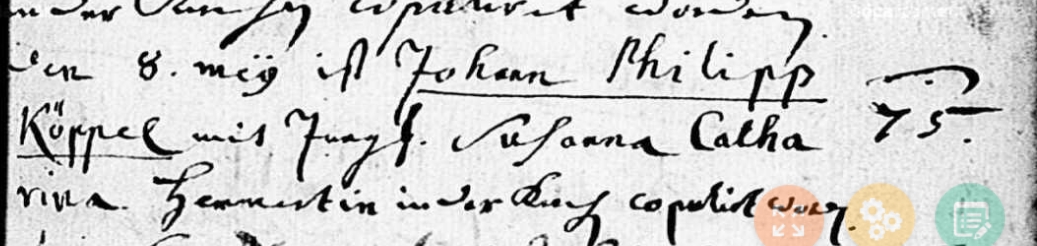 in der Kirchen copulirt worden
den 8. meÿ ist Johann Philipp 75.
Köppel mit Jungf. Susanna Catha
rina Hermestin in der Kirch copulirt word.